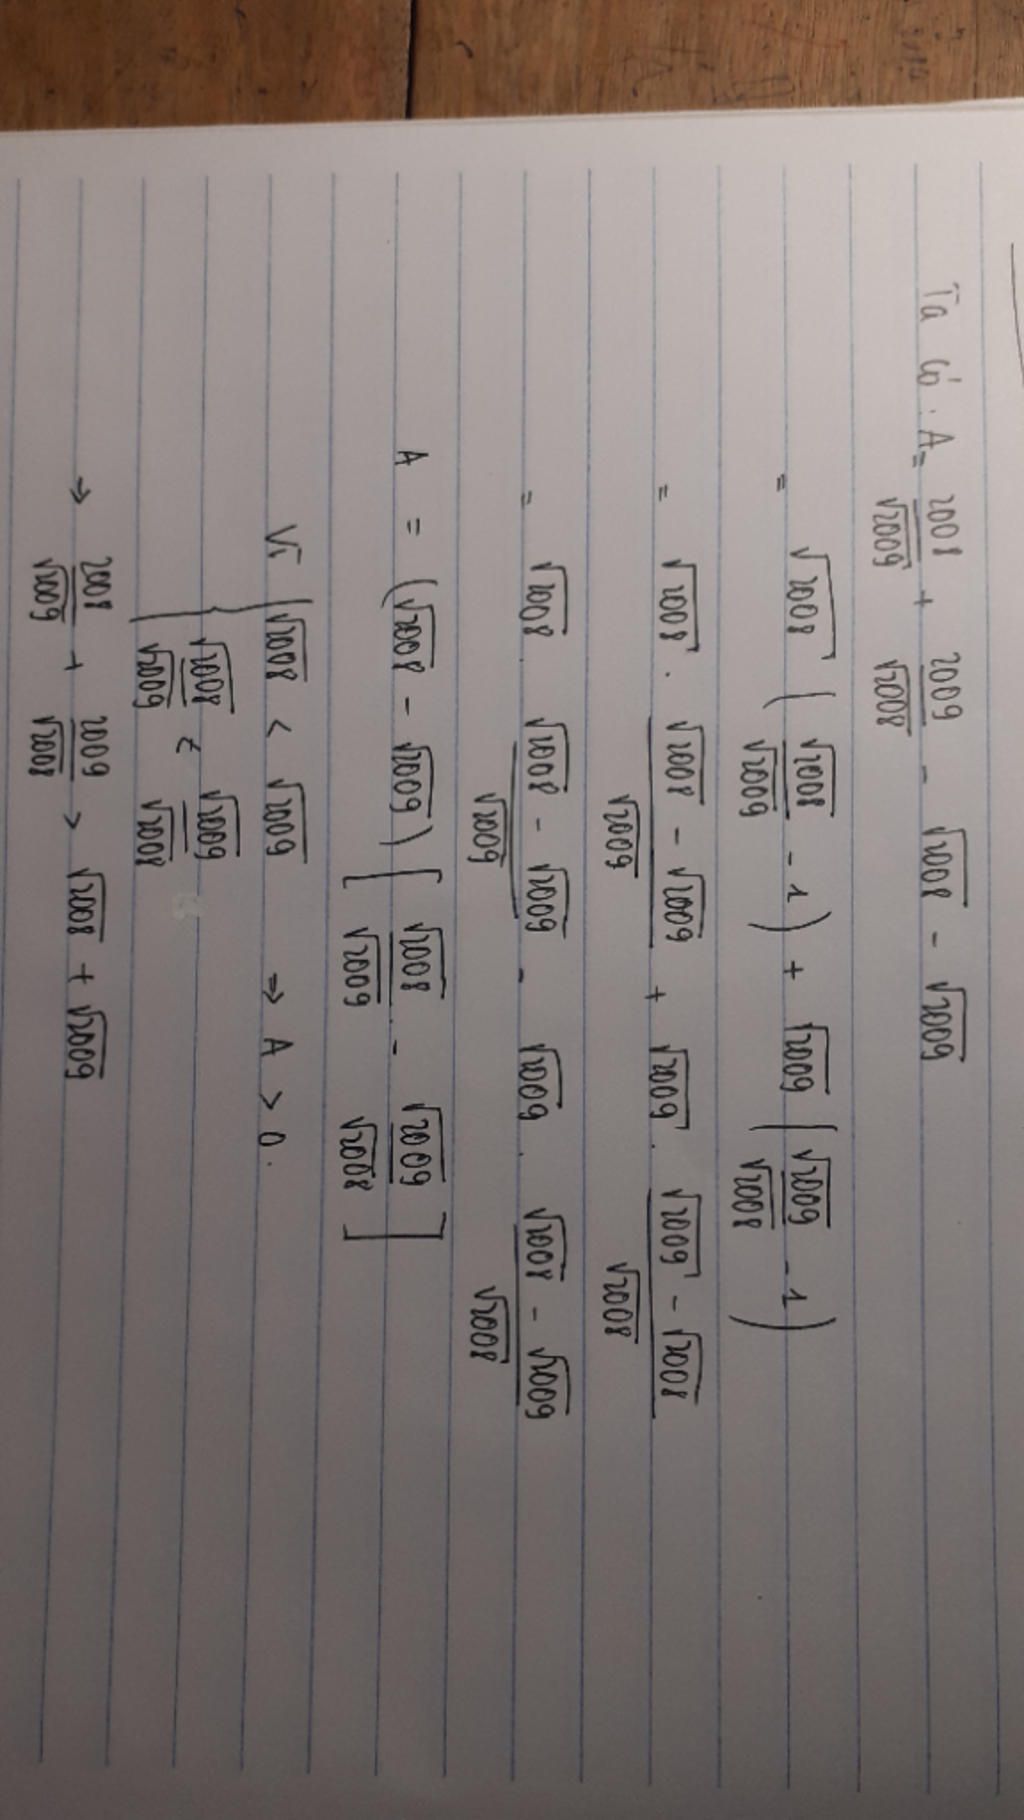 Ta có: A = 2008/√2009 + 2009/√2008 - √2008 - √2009
= √2008 (√2008/√2009 - 1) + √2009 (√2009/√2008 - 1)
= √2008 . (√2008 - √2009)/√2009 + √2009 . (√2009 - √2008)/√2008
= √2008 . (√2008 - √2009)/√2009 - √2009 . (√2008 - √2009)/√2008
A = (√2008 - √2009) [√2008/√2009 - √2009/√2008]
Vì { √2008 < √2009 ⇒ A > 0.
√2008/√2009 < √2009/√2008
⇒ 2008/√2009 + 2009/√2008 > √2008 + √2009